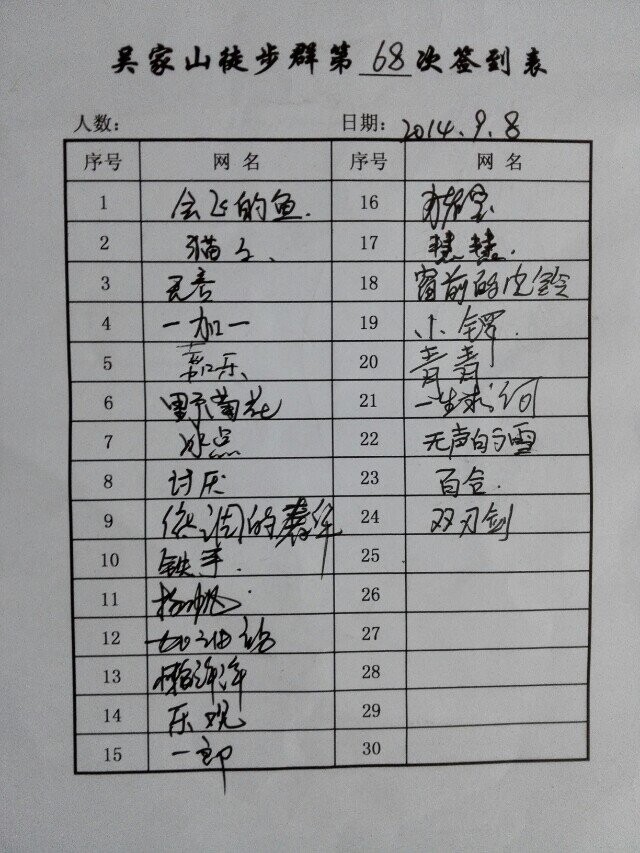 吴家山徒步群第 68 次签到表
人数: 日期: 2014.9.8
序号 网名 序号 网名
1 会飞的鱼. 16
2 猫 17 慧慧.
3 无言 18 窗前的风铃
4 一加一 19 小锣.
5 嘉乐. 20 青青
6 野菊花 21 一生求何
7 冰点 22 无声的雪
8 讨厌 23 百合.
9 低调的青年 24 双刃剑
10 铁手. 25
11 杨帆. 26
12 加油站 27
13 懒洋洋 28
14 乐观 29
15 一郎 30